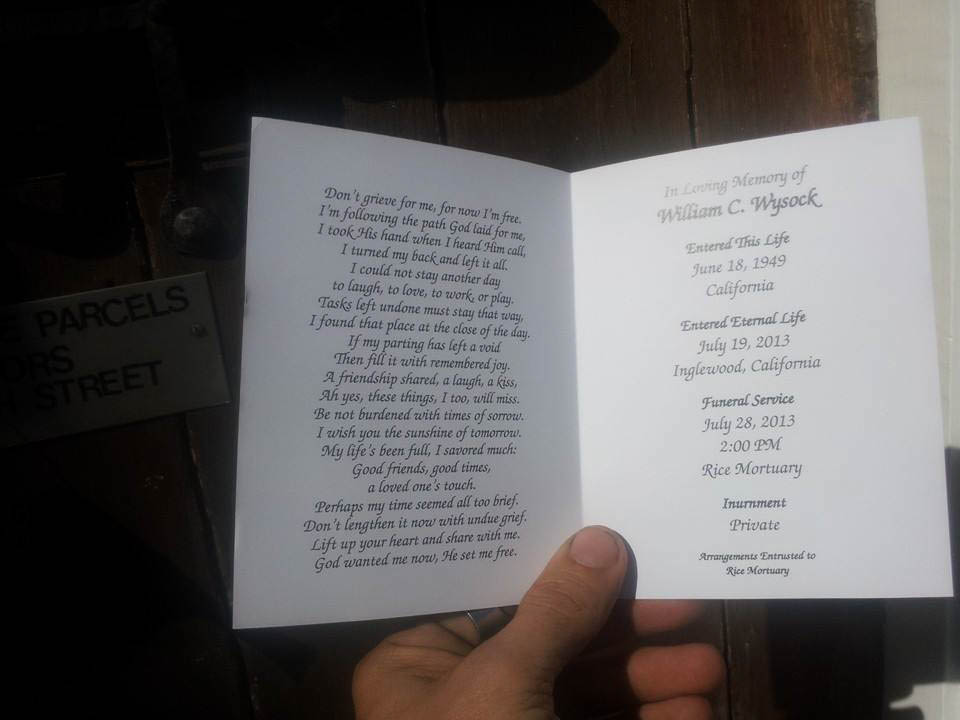 Don't grieve for me, for now I'm free.
I'm following the path God laid for me,
I took His hand when I heard Him call,
I turned my back and left it all.
I could not stay another day
to laugh, to love, to work, or play.
Tasks left undone must stay that way,
I found that place at the close of the day.
If my parting has left a void
Then fill it with remembered joy.
A friendship shared, a laugh, a kiss,
Ah yes, these things, I too, will miss.
Be not burdened with times of sorrow.
I wish you the sunshine of tomorrow.
My life's been full, I savored much:
Good friends, good times,
a loved one's touch.
Perhaps my time seemed all too brief.
Don't lengthen it now with undue grief.
Lift up your heart and share with me.
God wanted me now, He set me free.
In Loving Memory of
William C. Wysock
Entered This Life
June 18, 1949
California
Entered Eternal Life
July 19, 2013
Inglewood, California
Funeral Service
July 28, 2013
2:00 PM
Rice Mortuary
Inurnment
Private
Arrangements Entrusted to
Rice Mortuary
PARCELS
STREET